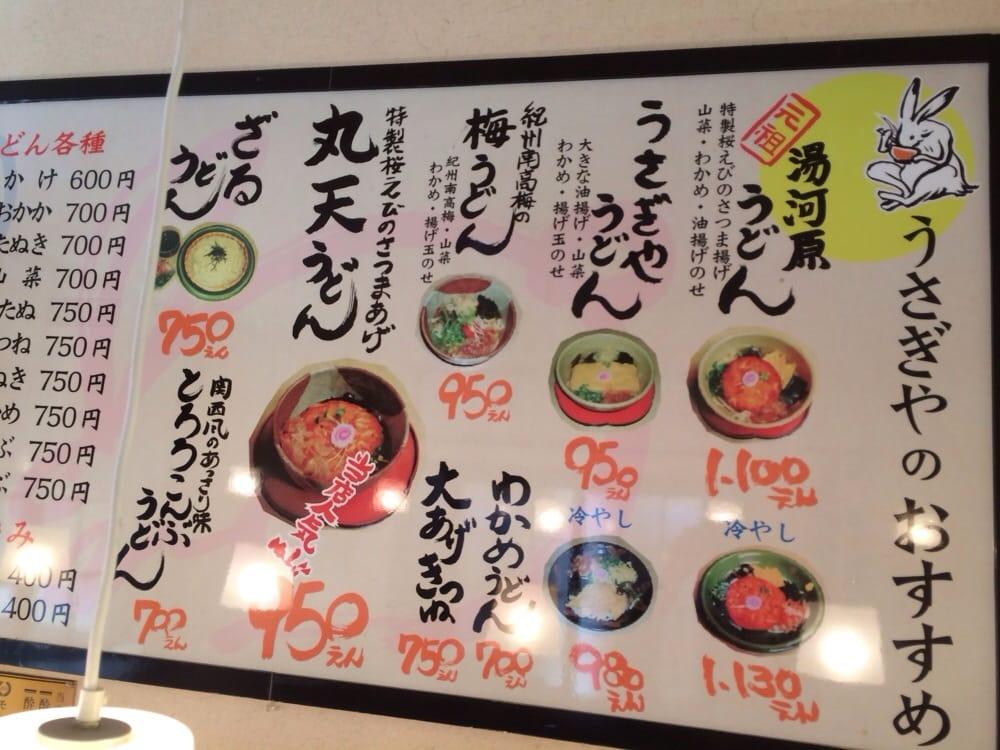 うさぎやのおすすめ
元祖
湯河原
うどん
特製桜えびのさつま揚げ
山菜・わかめ・油揚げのせ
1.100えん
冷やし
1.130えん
うさぎや
うどん
大きな油揚げ・山菜
わかめ・揚げ玉のせ
950えん
冷やし
980えん
紀州南高梅の
梅うどん
紀州南高梅・山菜
わかめ・揚げ玉のせ
950えん
わかめうどん
700えん
大あげきつね
750えん
特製桜えびのさつまあげ
丸天うどん
当店人気
950えん
ざる
うどん
750えん
関西風のあっさり味
とろろこんぶ
うどん
700えん
どん各種
かけ 600円
おかか 700円
たぬき 700円
山菜 700円
たぬ 750円
つね 750円
ぬき 750円
め 750円
ぶ 750円
750円
み
400円
400円